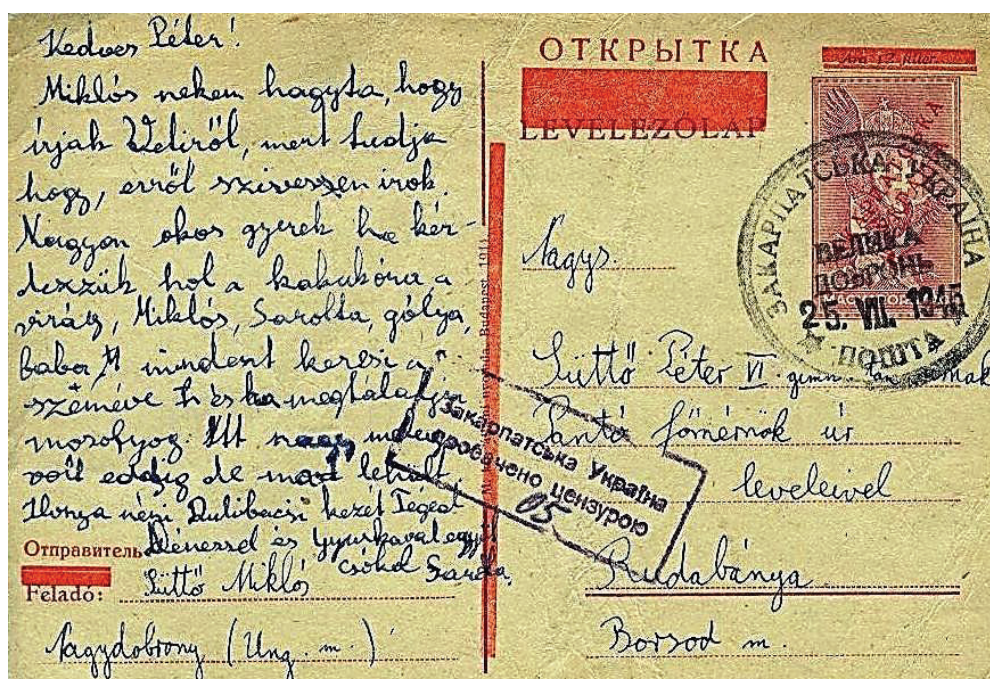 Kedves Péter!
Miklós nekem hagyta, hogy
írjak Veliről, mert tudja
hogy, erről szivessen irok.
Nagyon okos gyerek ha kér-
dezzük hol a kakukóra, a
virág, Miklós, Sarolta, gólya,
baba mindent keresi a
szemével és ha megtalálja
mosolyog. Itt nagy meleg
volt eddig de most lehült.
Ilonya néni, kezét Téged
Dénessel és Gyurkával együtt
csókol Sarolta
Отправитель
Feladó: Süttő Miklós
Nagydobrony (Ung. m.)
ОТКРЫТКА
LEVELEZŐLAP
Ára 12 fillér
ЗАКАРПАТСЬКА УКРАЇНА
ВЕЛИКА
ДОБРОНЬ
25. VII. 1945
ПОШТА
Nagys.
Süttő Péter VI. gimn. tan.
Pantó főmérnök úr
leveleivel
Rudabánya
Borsod m.
Закарпатська Україна
провачено цензурою
05
Budapest 1941